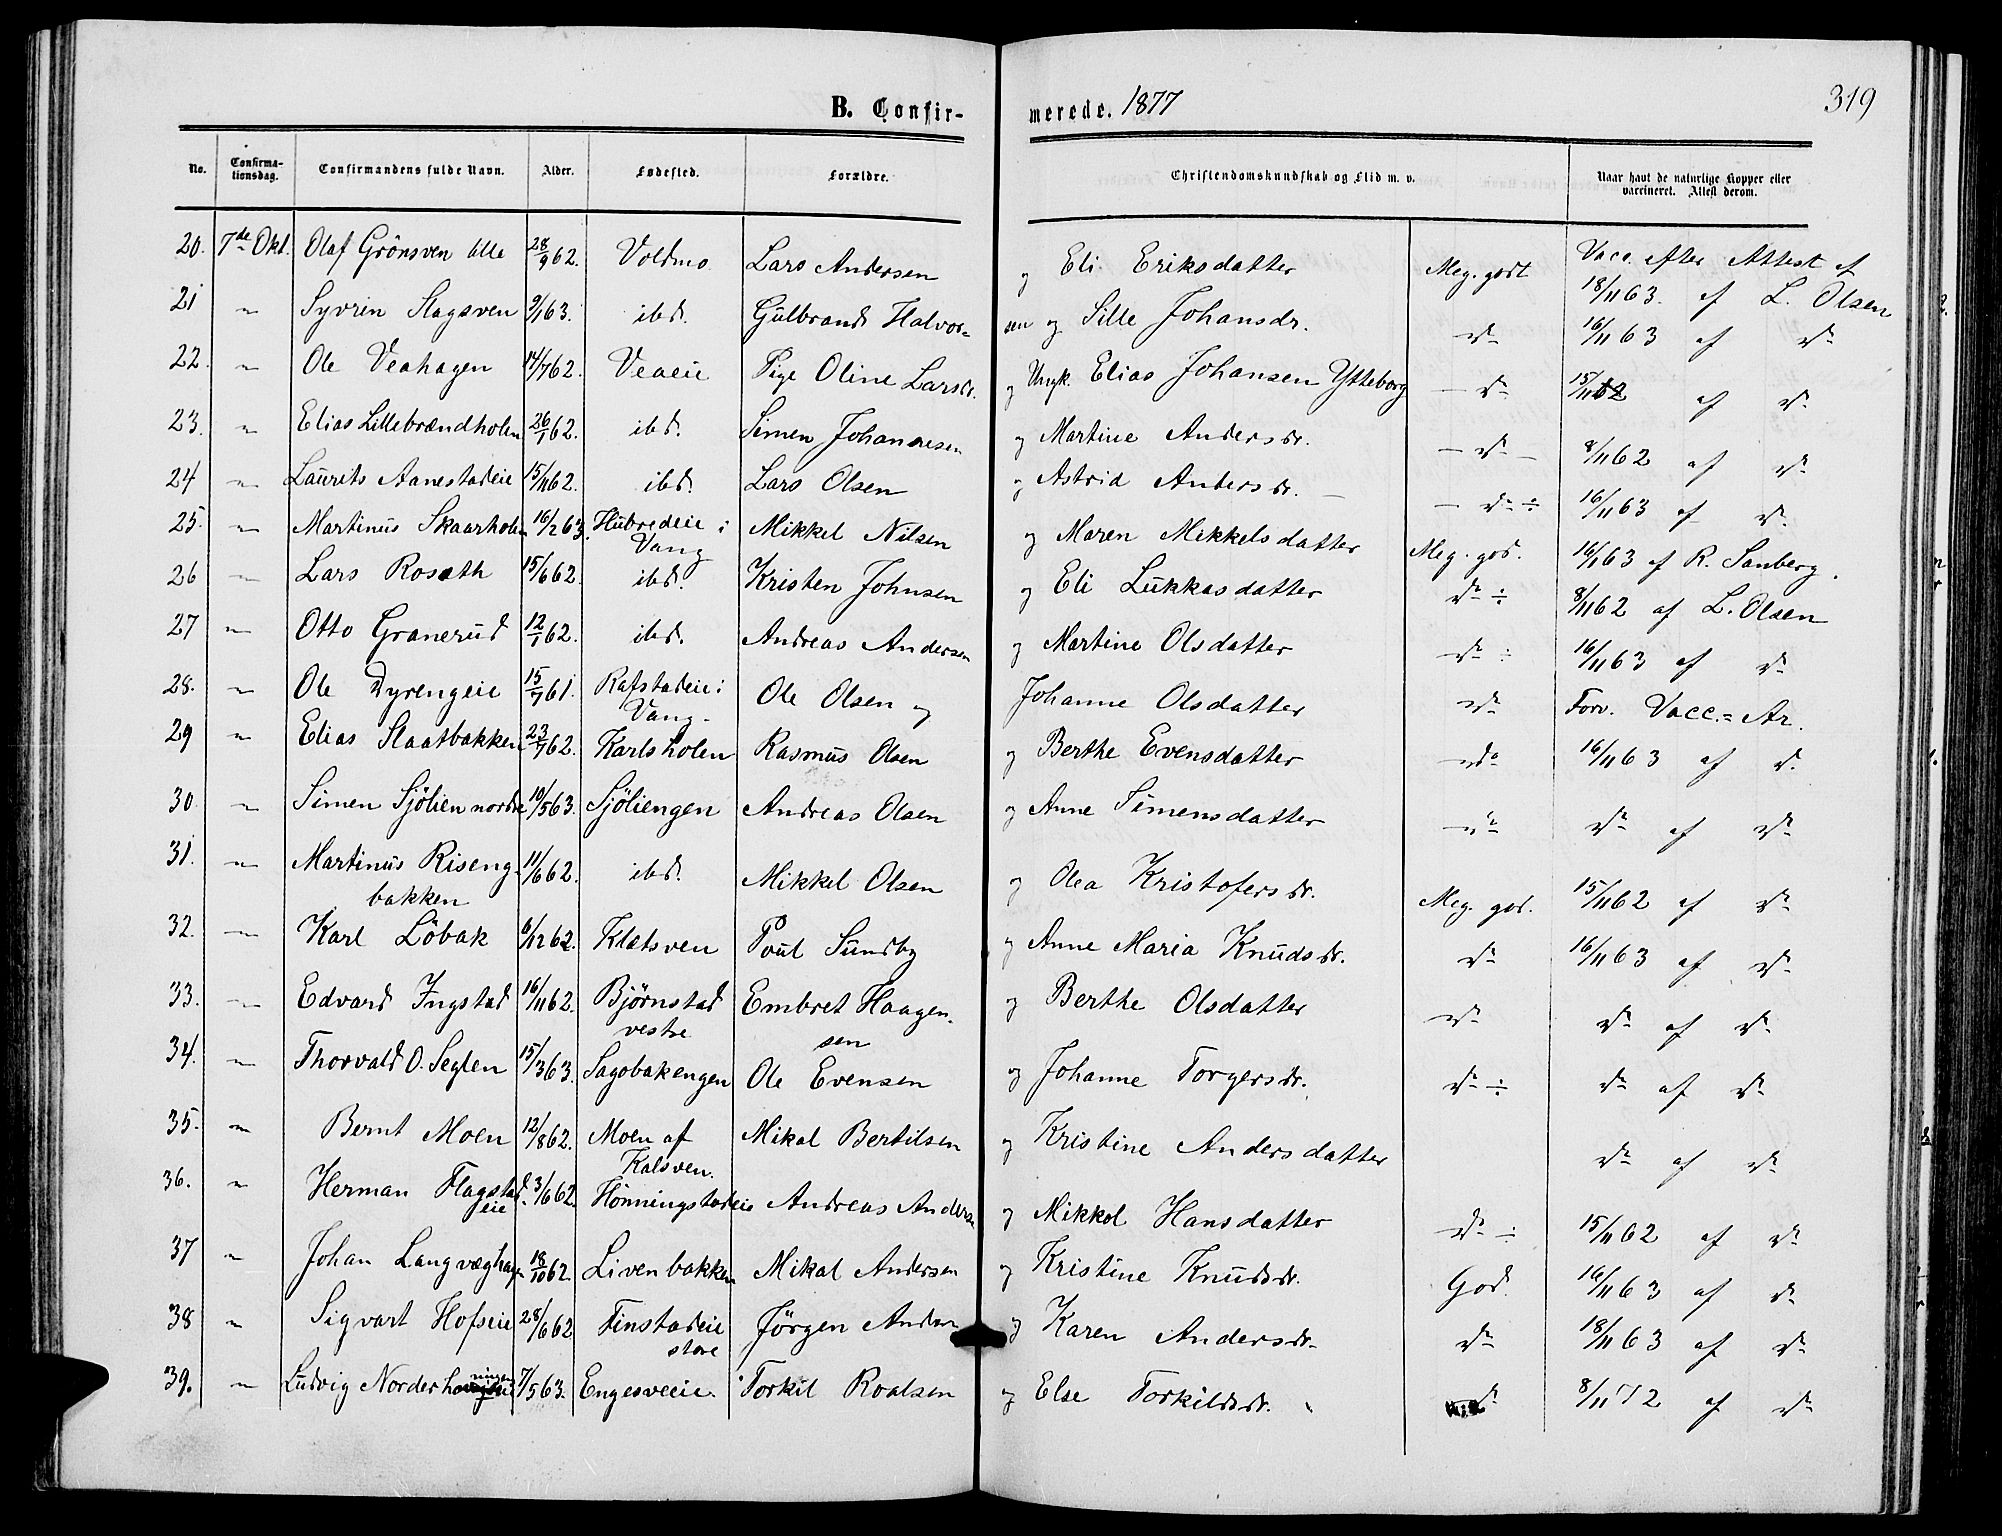 B. Confir-merede. 1877 319
No. Confirma-tionsdag. Confirmandens fulde Navn. Alder. Fødested. Forældre. Christendomskundskab og Flid m. v. Naar havt de naturlige Kopper eller vaccineret. Attest derom.
20. 7de Okt. Olaf Grönsven lille 28/9 62. Voldmo Lars Andersen og Eli Eriksdatter Meg. godt Vacc. efter Attest af 18/11 63. af L. Olsen
21 " Syvrin Slagsven 9/1 63. ibd. Gulbrand Halvor-sen og Sille Johansdr. do 16/11 63 af do
22. " Ole Veahagen 14/7 62. Veaeie Pige Oline Larsdr. og Ungk. Elias Johansen Ytteborg - do 15/11 62 af do
23. " Elias Lillebrændholen 26/1 62. ibd. Simen Johannesen og Martine Andersdr. - do - 8/11 62 af do
24 " Laurits Aanestadeie 15/11 62. ibd. Lars Olsen og Astrid Andersdr. - - do ÷ 16/11 63 af do
25. " Martinus Skaarholen 16/2 63. Hubredeie i Vang Mikkel Nilsen og Maren Mikkelsdatter Meg. god. 16/1 63 af R. Sanberg.
26 " Lars Roseth 15/6 62. ibd. Kristen Johnsen og Eli Lukkasdatter do ÷ 8/11 62 af L. Olsen
27 " Otto Granerud 12/1 62. ibd. Andreas Andersen og Martine Olsdatter do : 16/11 63 af do
28. " Ole Dyrengeie 15/7 61. Rafstadeie i Vang. Ole Olsen og Johanne Olsdatter do Forv. Vacc.= Ar.
29 " Elias Slaatbakken 23/7 62. Karlsholen Rasmus Olsen og Berthe Evensdatter do 16/11 63 af do
30 " Simen Sjölien nordre 10/5 63. Sjöliengen Andreas Olsen og Anne Simensdatter do do af do
31. " Martinus Riseng-bakken 11/6 62. ibd. Mikkel Olsen og Olea Kristofersdr. Meg. god. 15/11 62 af do
32. " Karl Löbak 6/12 62. Klætsven Poul Sundby og Anne Maria Knudsdr. do 16/11 63 af do
33. " Edvard Ingstad 16/11 62. Bjørnstad vestre Embret Haagen-sen og Berthe Olsdatter do do af do
34. " Thorvald O. Seglen 15/3 63. Sagobakengen Ole Evensen og Johanne Torgersdr. do ÷ do af do
35. " Bernt Moen 12/8 62. Moen af Kalsven. Mikal Bertilsen og Kristine Andersdatter do af do
36. " Herman Flagstad eie 3/6 62. Hönningstadeie Andreas Andersen og Mikkol Hansdatter do ÷ 15/11 62 af do
37 " Johan Langvæghagen 18/10 62. Livenbakken Mikal Andersen og Kristine Knudsdr. God. 16/11 63 af do
38 " Sigvart Hofseie 28/6 62 Finstadeie store Jörgen Anders og Karen Andersdr. do 18/11 63 af do
39. " Ludvig Norderho 7/5 63. Engesveeie. Torkil Roalsen og Else Torkildsdr. do 8/11 72 af do